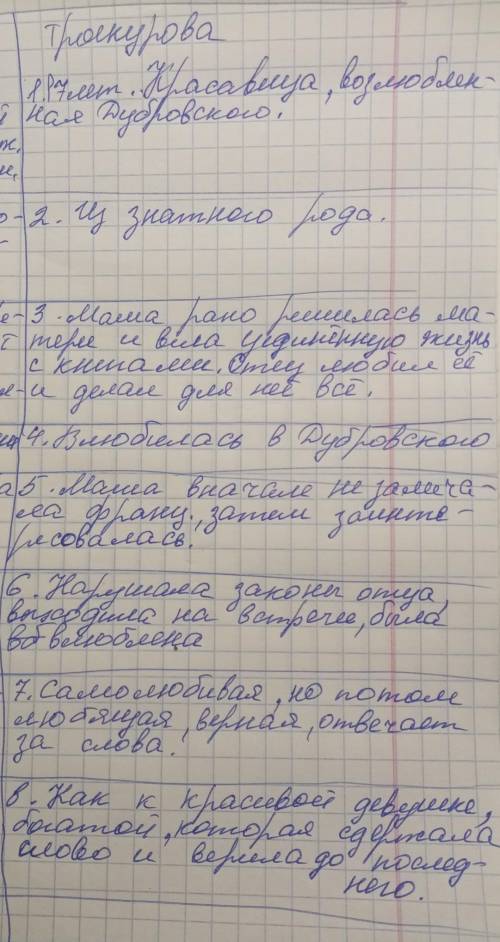 Троекурова
1. 17 лет. Красавица, возлюблен-
ная Дубровского.
2. Из знатного рода.
3. Маша рано решилась ма-
тери и вела уединённую жизнь
с книгами. Отец любил её
и делал для неё всё.
4. Влюбилась в Дубровского
5. Маша вначале не замеча-
ла франц., затем заинте-
ресовалась.
6. Нарушала законы отца,
выходила на встречи, была
влюблена
7. Самолюбивая, но потом
любящая, верная, отвечает
за слова.
8. Как к красивой девушке,
богатой, которая сдержала
слово и верила до послед-
него.